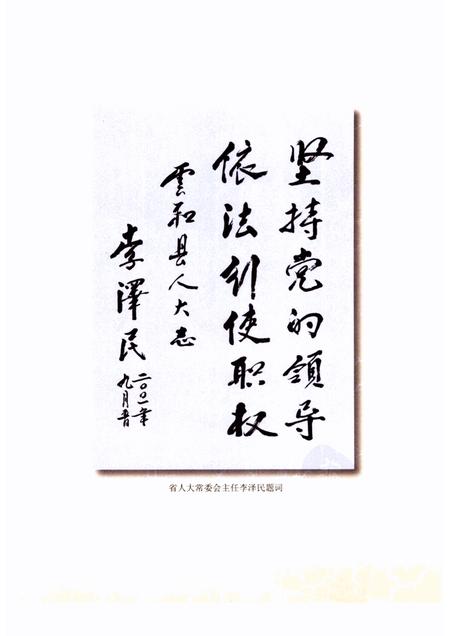 坚持党的领导
依法行使职权
雲和县人大志
李澤民
二〇〇一年
九月
省人大常委会主任李泽民题词